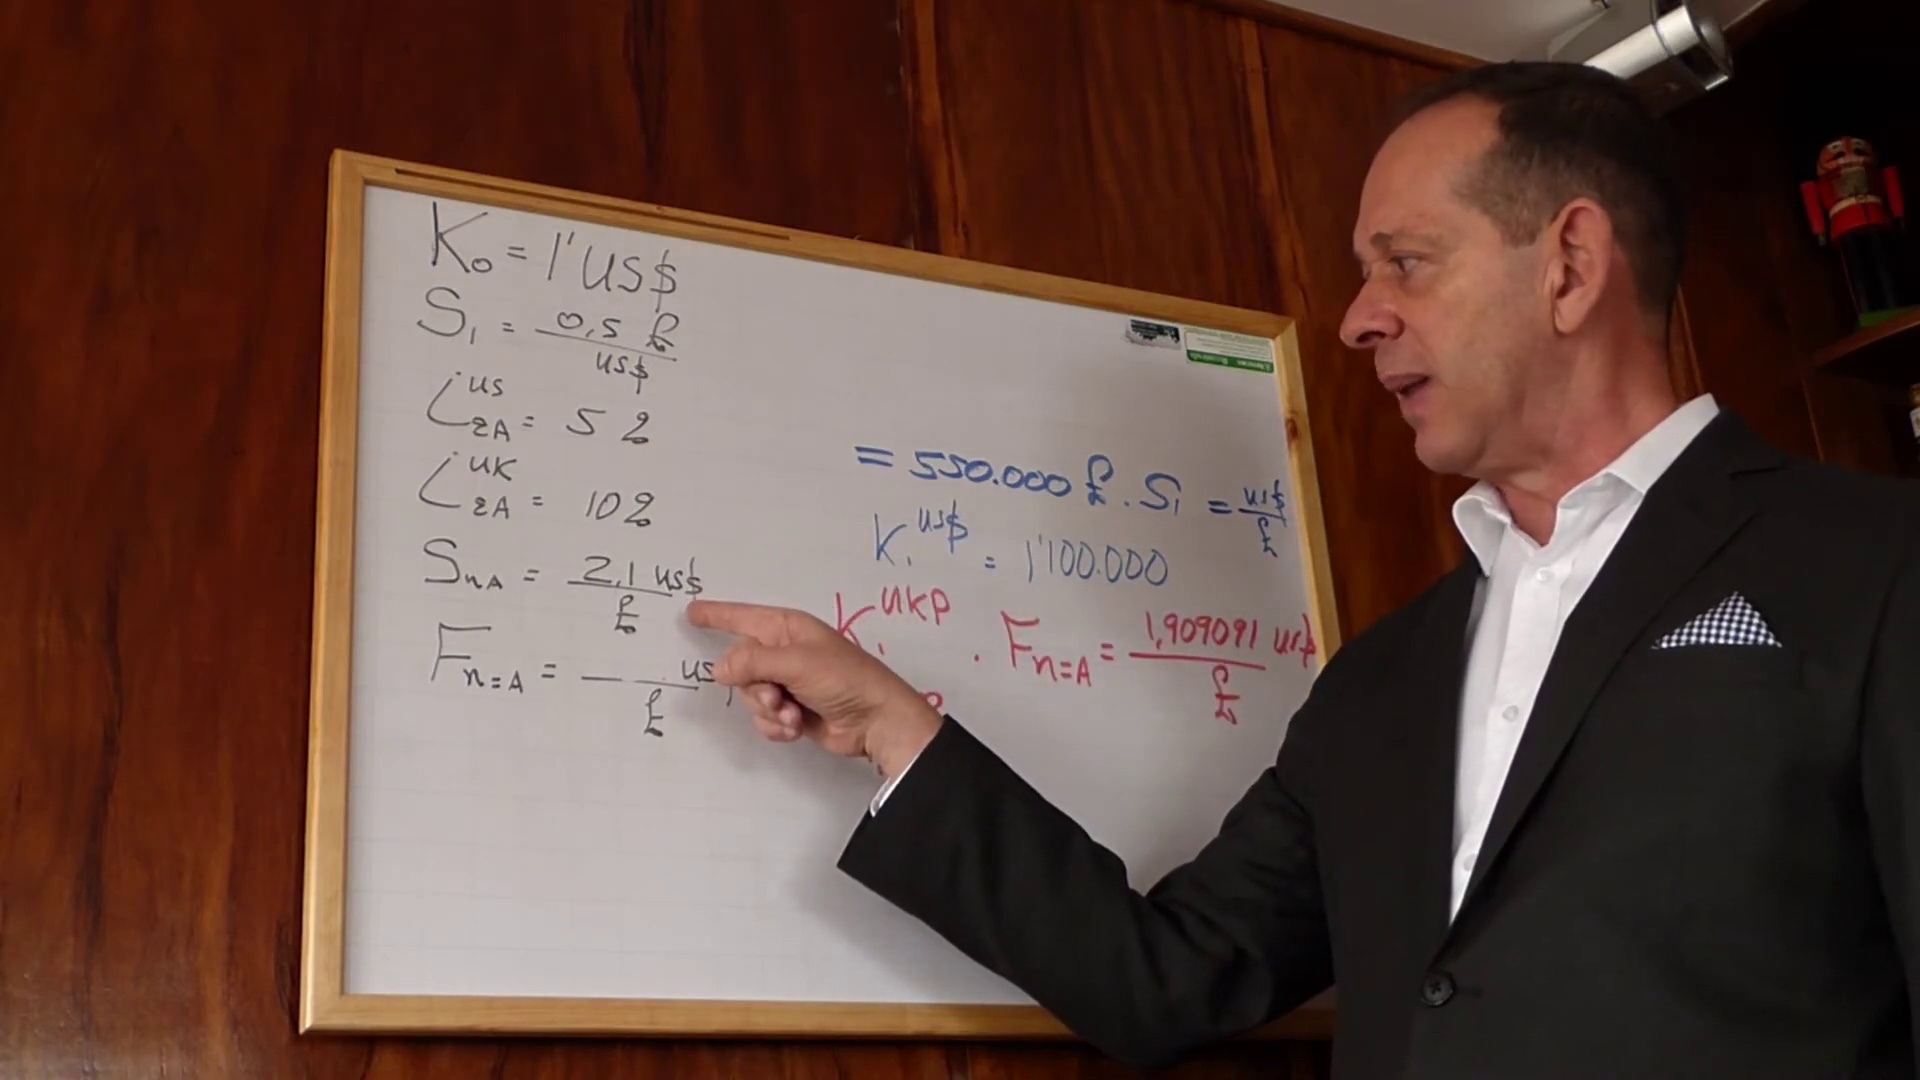 K₀ = 1' US$
S₁ = 0,5 £
US$
i US
EA = 5 %
i UK
EA = 10 %
SnA = 2,1 US$
£
Fn=A = us
£
= 550.000 £ . S₁ = US$
£
K₁ US$ = 1'100.000
K₁ UKP . Fn=A = 1,909091 US$
£